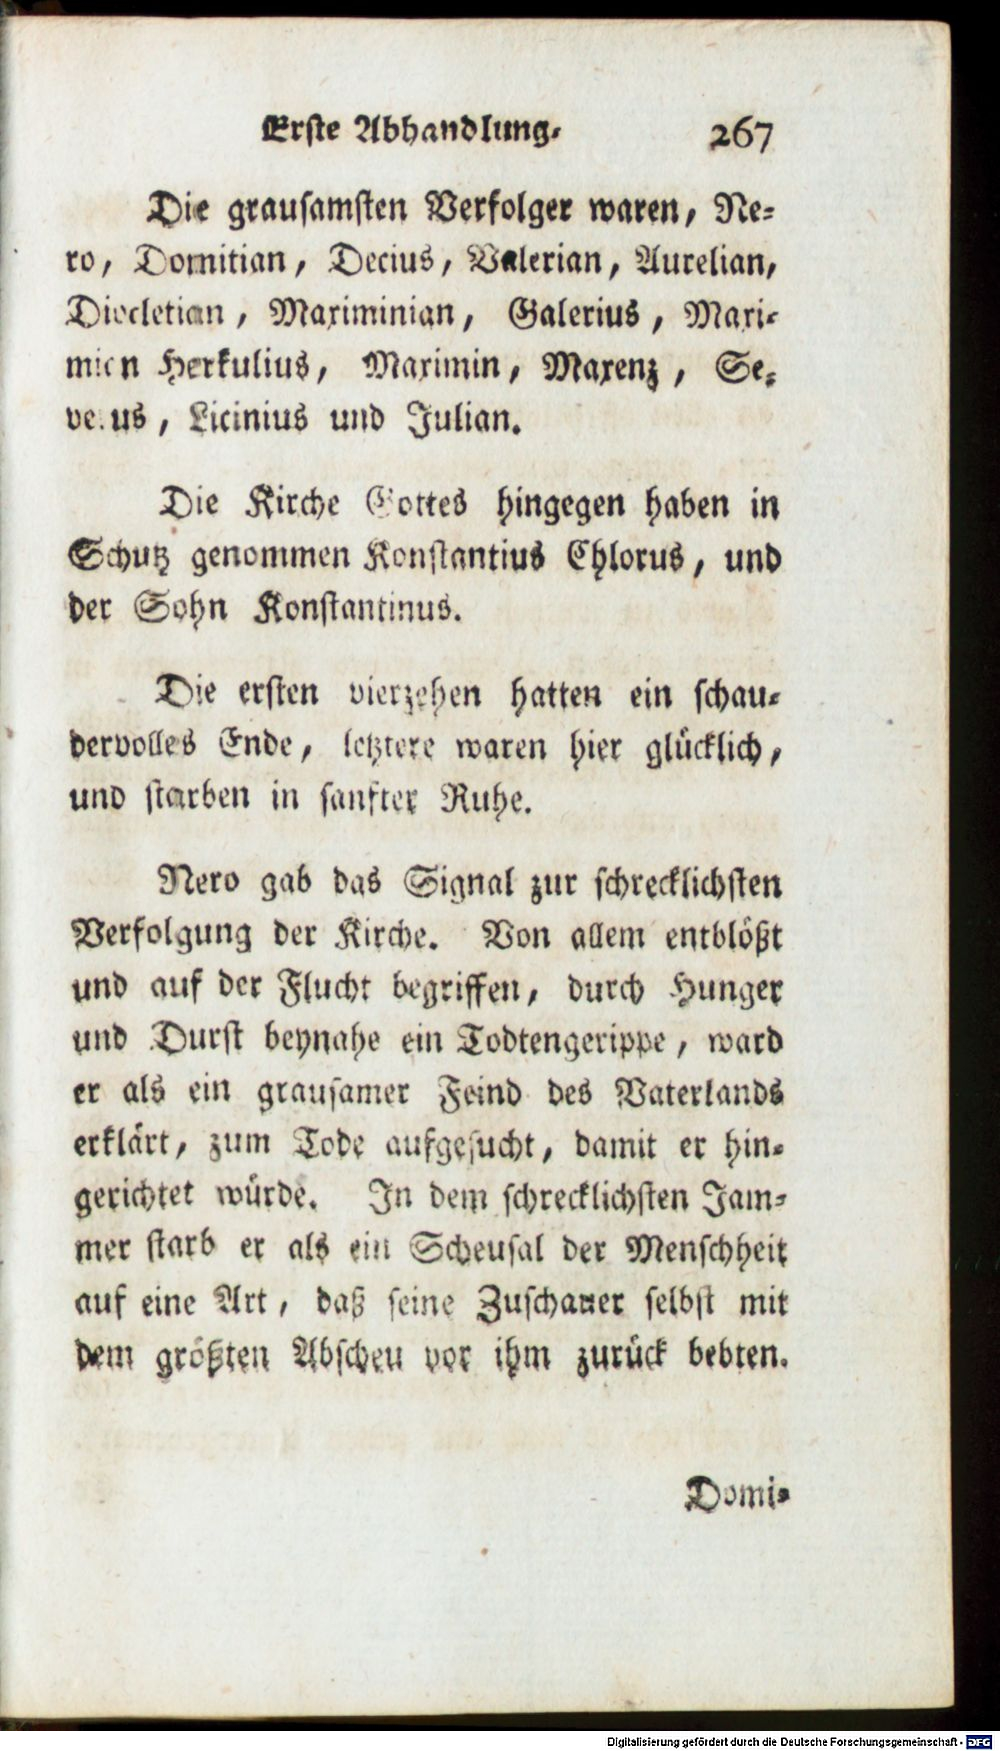 Erste Abhandlung. 267
Die grausamsten Verfolger waren, Ne-
ro, Domitian, Decius, Valerian, Aurelian,
Diocletian, Maximinian, Galerius, Maxi-
mian Herkulius, Maximin, Maxenz, Se-
verus, Licinius und Julian.
Die Kirche Gottes hingegen haben in
Schutz genommen Konstantius Chlorus, und
der Sohn Konstantinus.
Die ersten vierzehen hatten ein schau-
dervolles Ende, letztere waren hier glücklich,
und starben in sanfter Ruhe.
Nero gab das Signal zur schrecklichsten
Verfolgung der Kirche. Von allem entblößt
und auf der Flucht begriffen, durch Hunger
und Durst beynahe ein Todtengerippe, ward
er als ein grausamer Feind des Vaterlands
erklärt, zum Tode aufgesucht, damit er hin-
gerichtet würde. In dem schrecklichsten Jam-
mer starb er als ein Scheusal der Menschheit
auf eine Art, daß seine Zuschauer selbst mit
dem größten Abscheu vor ihm zurück bebten.
Domi-
Digitalisierung gefördert durch die Deutsche Forschungsgemeinschaft - DFG